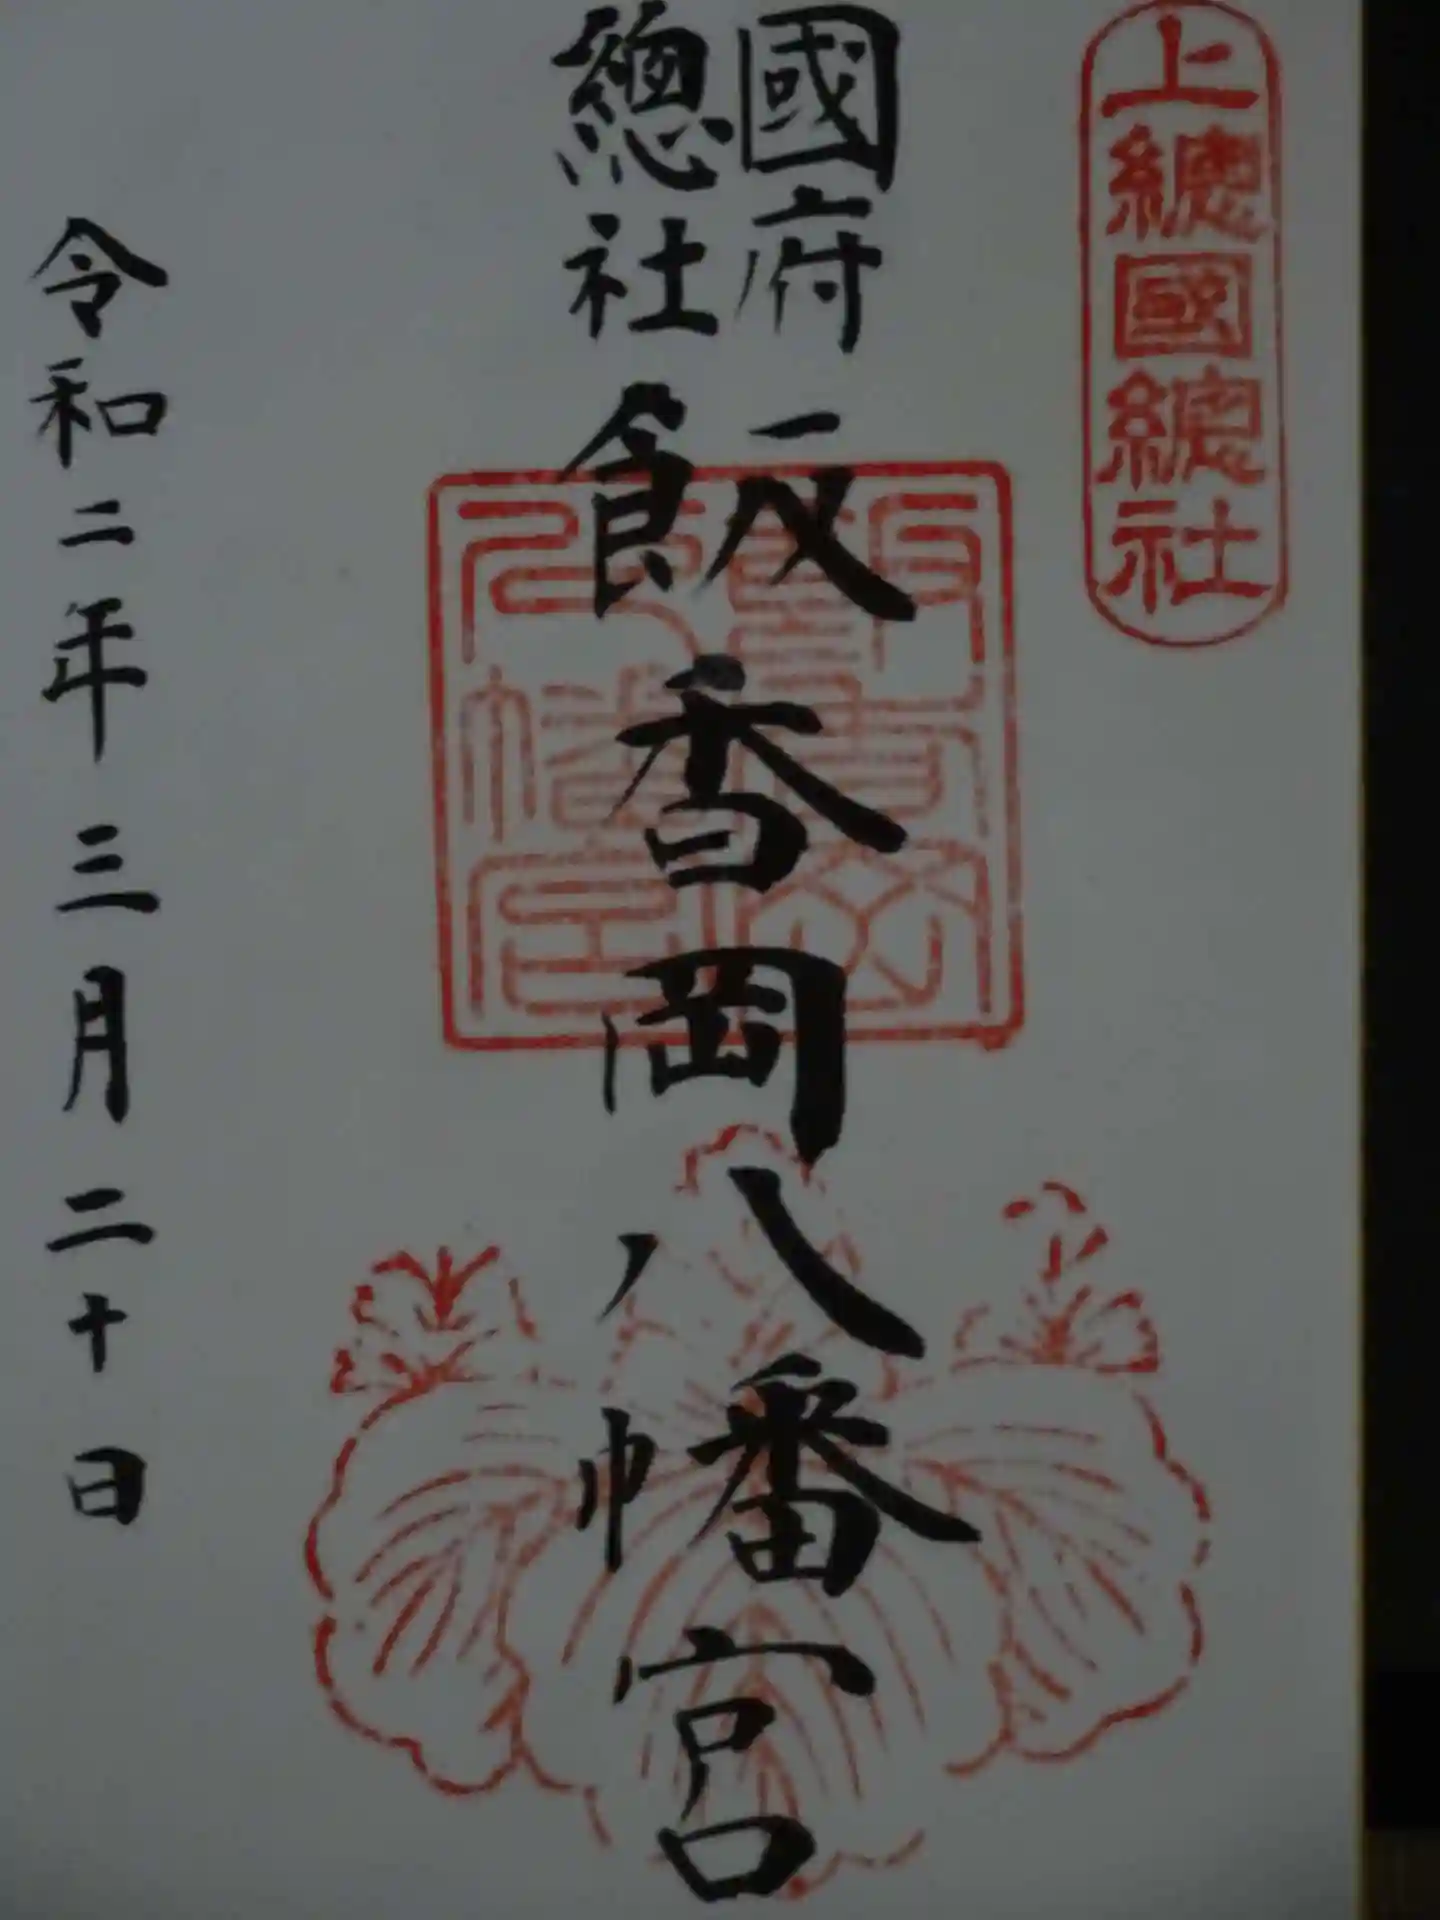 上總國總社
國府
總社
飯香岡八幡宮
飯香岡
八幡宮
令和二年三月二十日